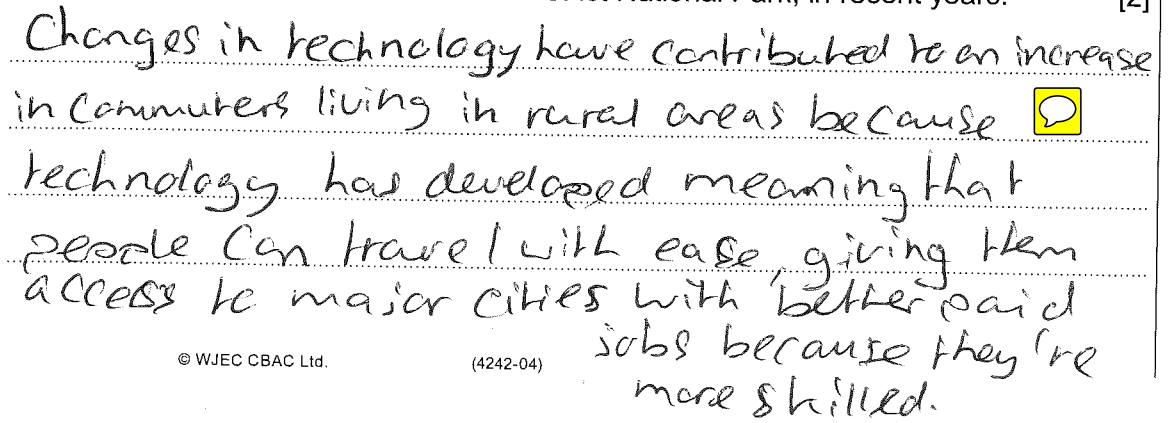 National Park, in recent years. [2]
Changes in technology have contributed to an increase
in commuters living in rural areas because
technology has developed meaning that
people can travel with ease, giving them
access to major cities with better paid
jobs because they're
more skilled.
© WJEC CBAC Ltd. (4242-04)